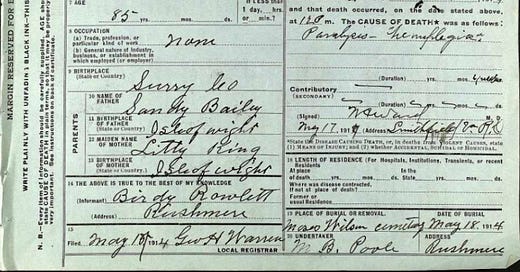 MARGIN RESERVED FOR
WRITE PLAINLY WITH UNFADING BLACK INK—THIS
N. B.—Every item of information should be carefully supplied. AGE should
7 AGE
85 yrs. mos. ds.
If LESS than
1 day, hrs.
or min.?
8 OCCUPATION
(a) Trade, profession, or
particular kind of work
none
(b) General nature of industry,
business, or establishment in
which employed (or employer)
9 BIRTHPLACE
(State or Country)
Surry Co
PARENTS
10 NAME OF
FATHER
Sandy Bailey
11 BIRTHPLACE
OF FATHER
(State or Country)
Isle of wight
12 MAIDEN NAME
OF MOTHER
Litty King
13 BIRTHPLACE
OF MOTHER
(State or Country)
Isle of wight
14 THE ABOVE IS TRUE TO THE BEST OF MY KNOWLEDGE
(Informant) Birdy Rowlett
(Address) Rushmere
15
Filed May 18, 1914 Geo H Warren
LOCAL REGISTRAR
and that death occurred, on the date stated above,
at 12 P m. The CAUSE OF DEATH was as follows:
Paralysis - Hemiplegia
(Duration) yrs. mos. ds.
Contributory
(SECONDARY)
(Duration) yrs. mos. ds.
(Signed)
May 17, 1914 (Address) Smithfield
*State the DISEASE CAUSING DEATH, or, in deaths from VIOLENT CAUSES, state
(1) MEANS OF INJURY; and (2) whether ACCIDENTAL, SUICIDAL, or HOMICIDAL.
18 LENGTH OF RESIDENCE (For Hospitals, Institutions, Transients, or recent
Residents)
At place
of death yrs. mos. ds. In the
State yrs. mos. ds.
Where was disease contracted,
if not at place of death?
Former or
usual residence
19 PLACE OF BURIAL OR REMOVAL DATE OF BURIAL
Moses Wilson cemetery May 18, 1914
20 UNDERTAKER ADDRESS
M B. Poole Rushmere